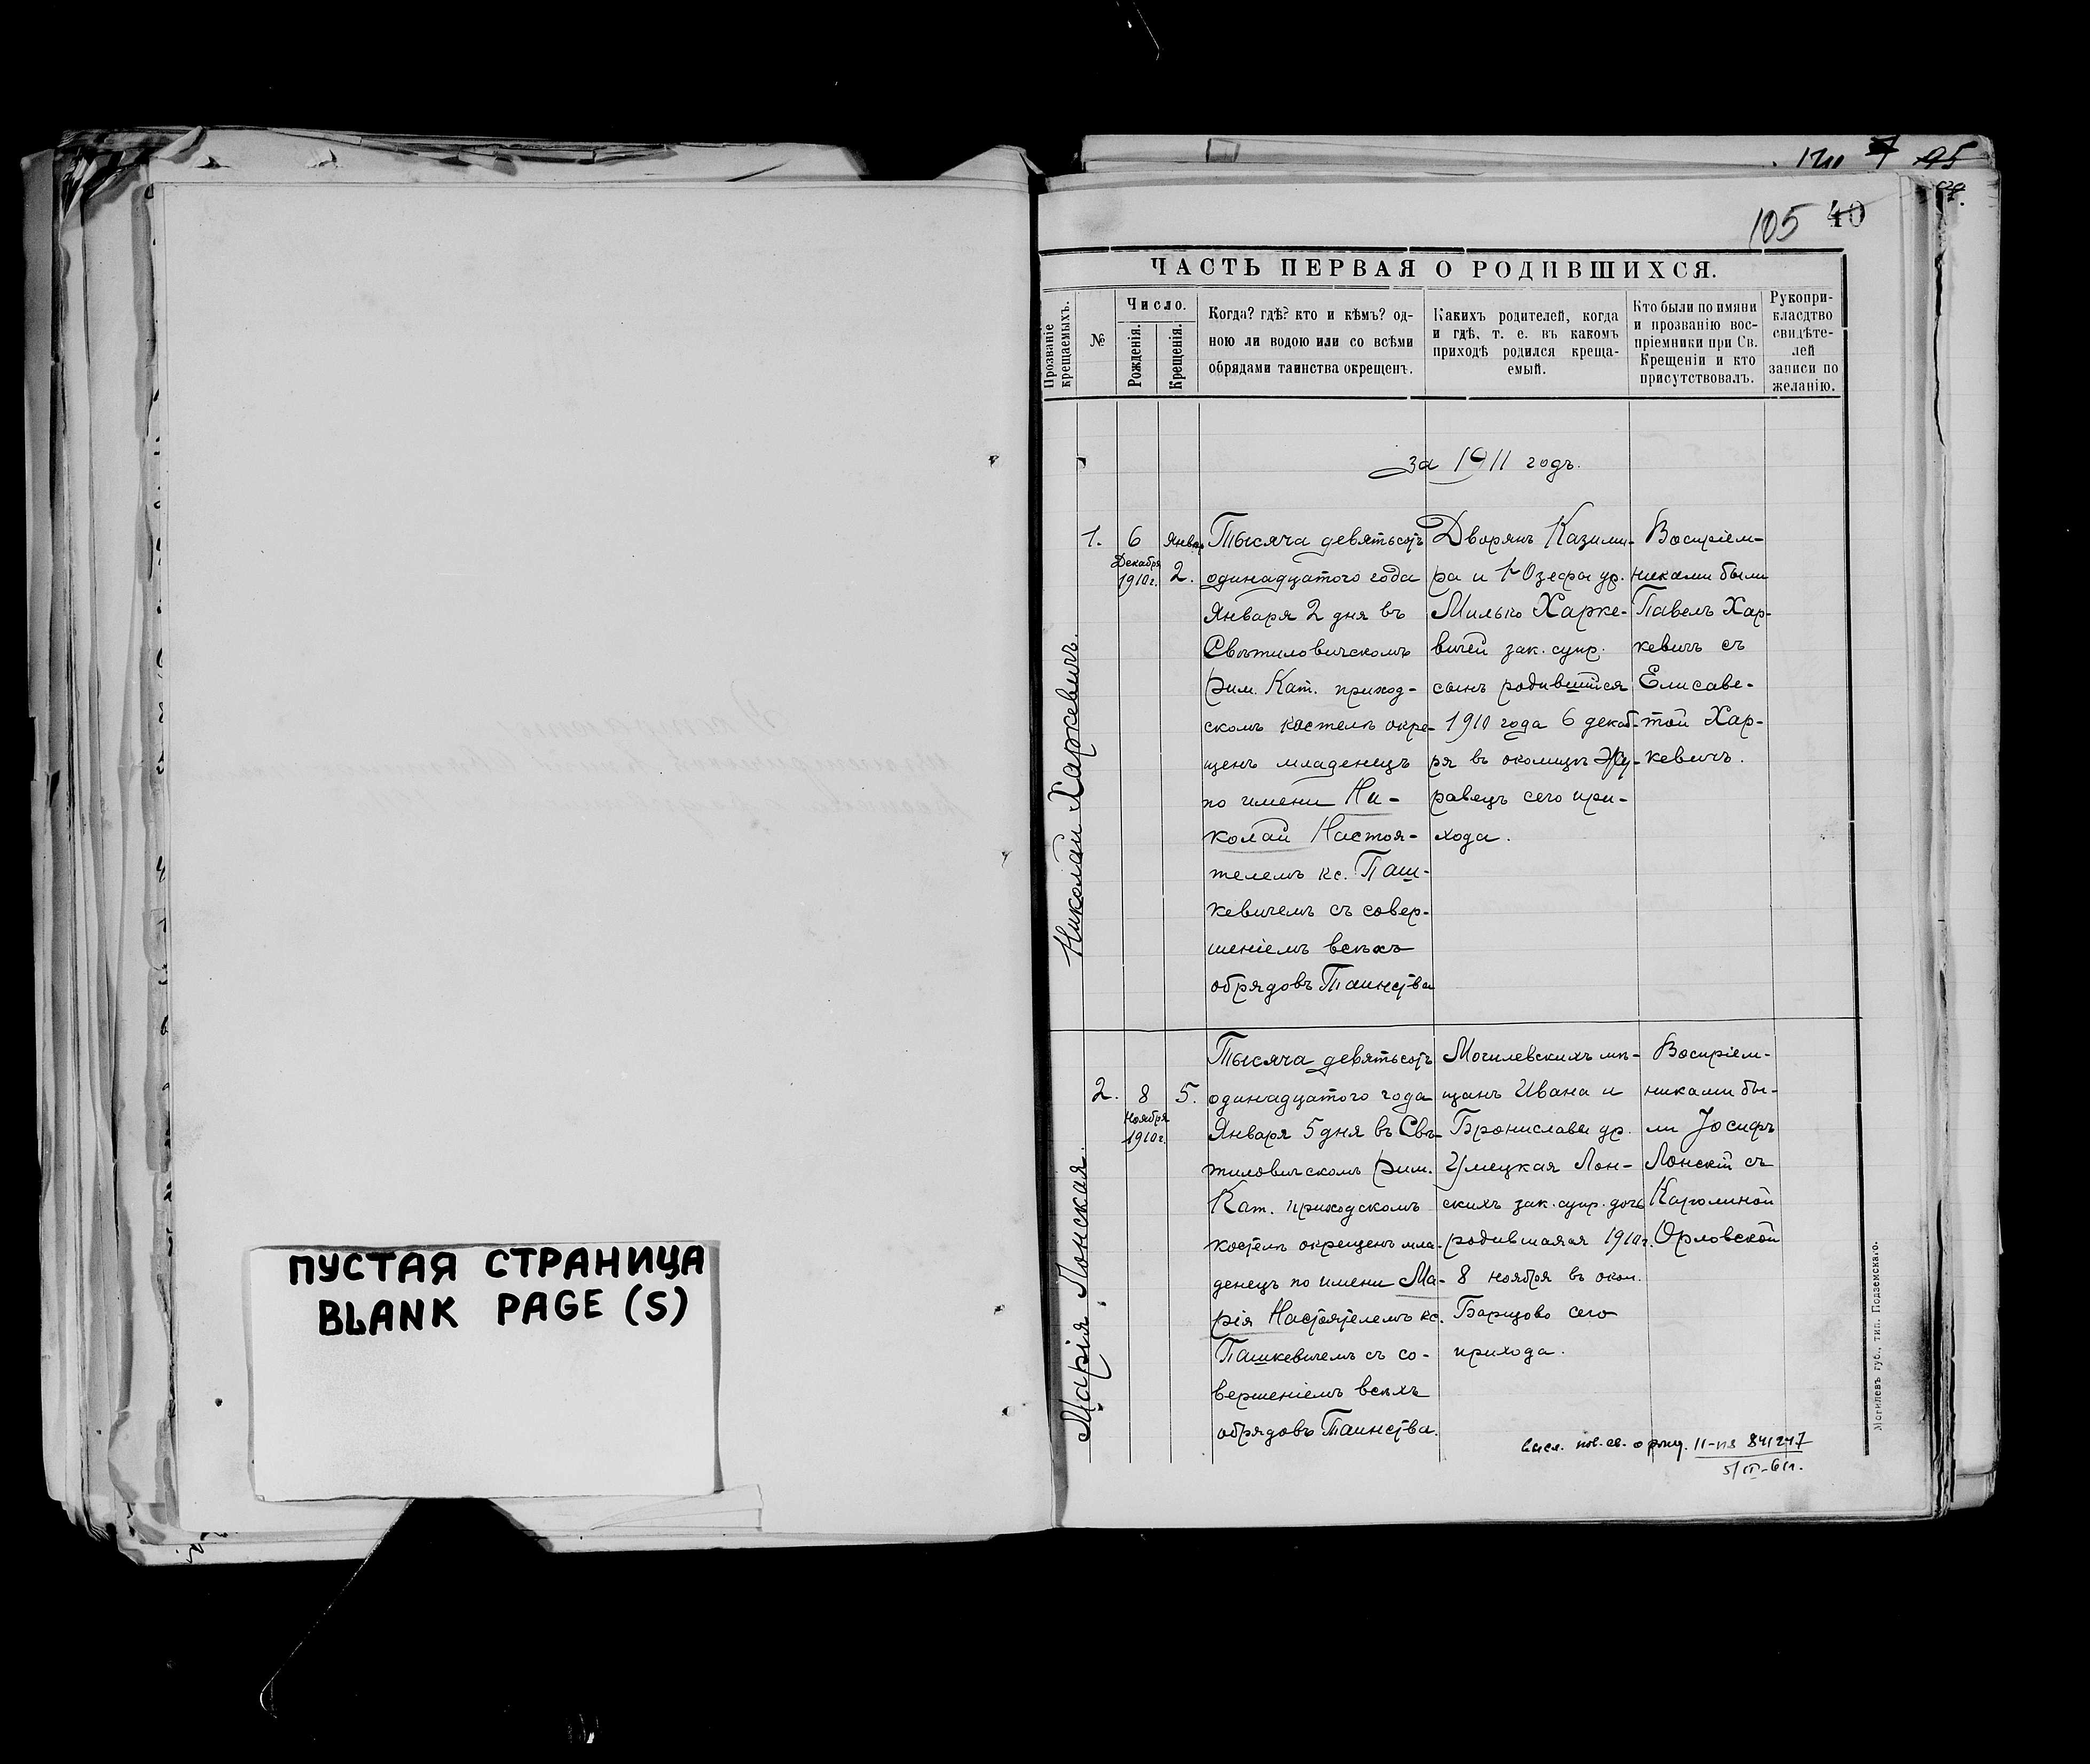 ПУСТАЯ СТРАНИЦА
BLANK PAGE (S)
95
105 40
ЧАСТЬ ПЕРВАЯ О РОДИВШИХСЯ.
Прозваніе крещаемыхъ.
№
Число.
Рожденія.
Крещенія.
Когда? гдѣ? кто и кѣмъ? од-
ною ли водою или со всѣми
обрядами таинства окрещенъ.
Какихъ родителей, когда
и гдѣ, т. е. въ какомъ
приходѣ родился креща-
емый.
Кто были по имяни
и прозванію вос-
пріемники при Св.
Крещеніи и кто
присутствовалъ.
Рукопри-
класдтво
свидѣте-
лей
записи по
желанію.
за 1911 годъ.
Николай Харкевичъ.
1.
6
Декабря
1910г.
Январ
2.
Тысяча девятьсотъ
одинадцатого года
Января 2 дня въ
Свѣтиловичскомъ
Рим. Кат. приход-
скомъ костелѣ окре-
щенъ младенецъ
по имени Ни-
колай Настоя-
телемъ кс. Паш-
кевичемъ съ совер-
шеніемъ всѣхъ
обрядовъ Таинства
Дворянъ Казими-
ра и Юзефы ур.
Милько Харке-
вичей зак. супр.
сынъ родившійся
1910 года 6 декаб-
ря въ околицѣ Жу-
равецъ сего при-
хода.
Воспріем-
никами были
Павелъ Хар-
кевичъ съ
Елисаве-
той Хар-
кевичъ.
Марія Лонская.
2.
8
Ноября
1910г.
5.
Тысяча девятьсотъ
одинадцатого года
Января 5 дня въ Свѣ-
тиловичскомъ Рим.
Кат. приходскомъ
костелѣ окрещенъ мла-
денецъ по имени Ма-
рія Настоятелемъ кс.
Пашкевичемъ съ со-
вершеніемъ всѣхъ
обрядовъ Таинства.
Могилевскихъ мѣ-
щанъ Ивана и
Брониславы ур.
Лон-
скихъ зак. супр. дочь
родившаяся 1910г.
8 ноября въ окол.
Барцово сего
прихода.
Воспріем-
никами бы-
ли Іосифъ
Лонскій съ
Каролиной
Орловской
о рожд. II-ПЯ 841247
5/II-61г.
Могилевъ губ., тип. Подземскаго.